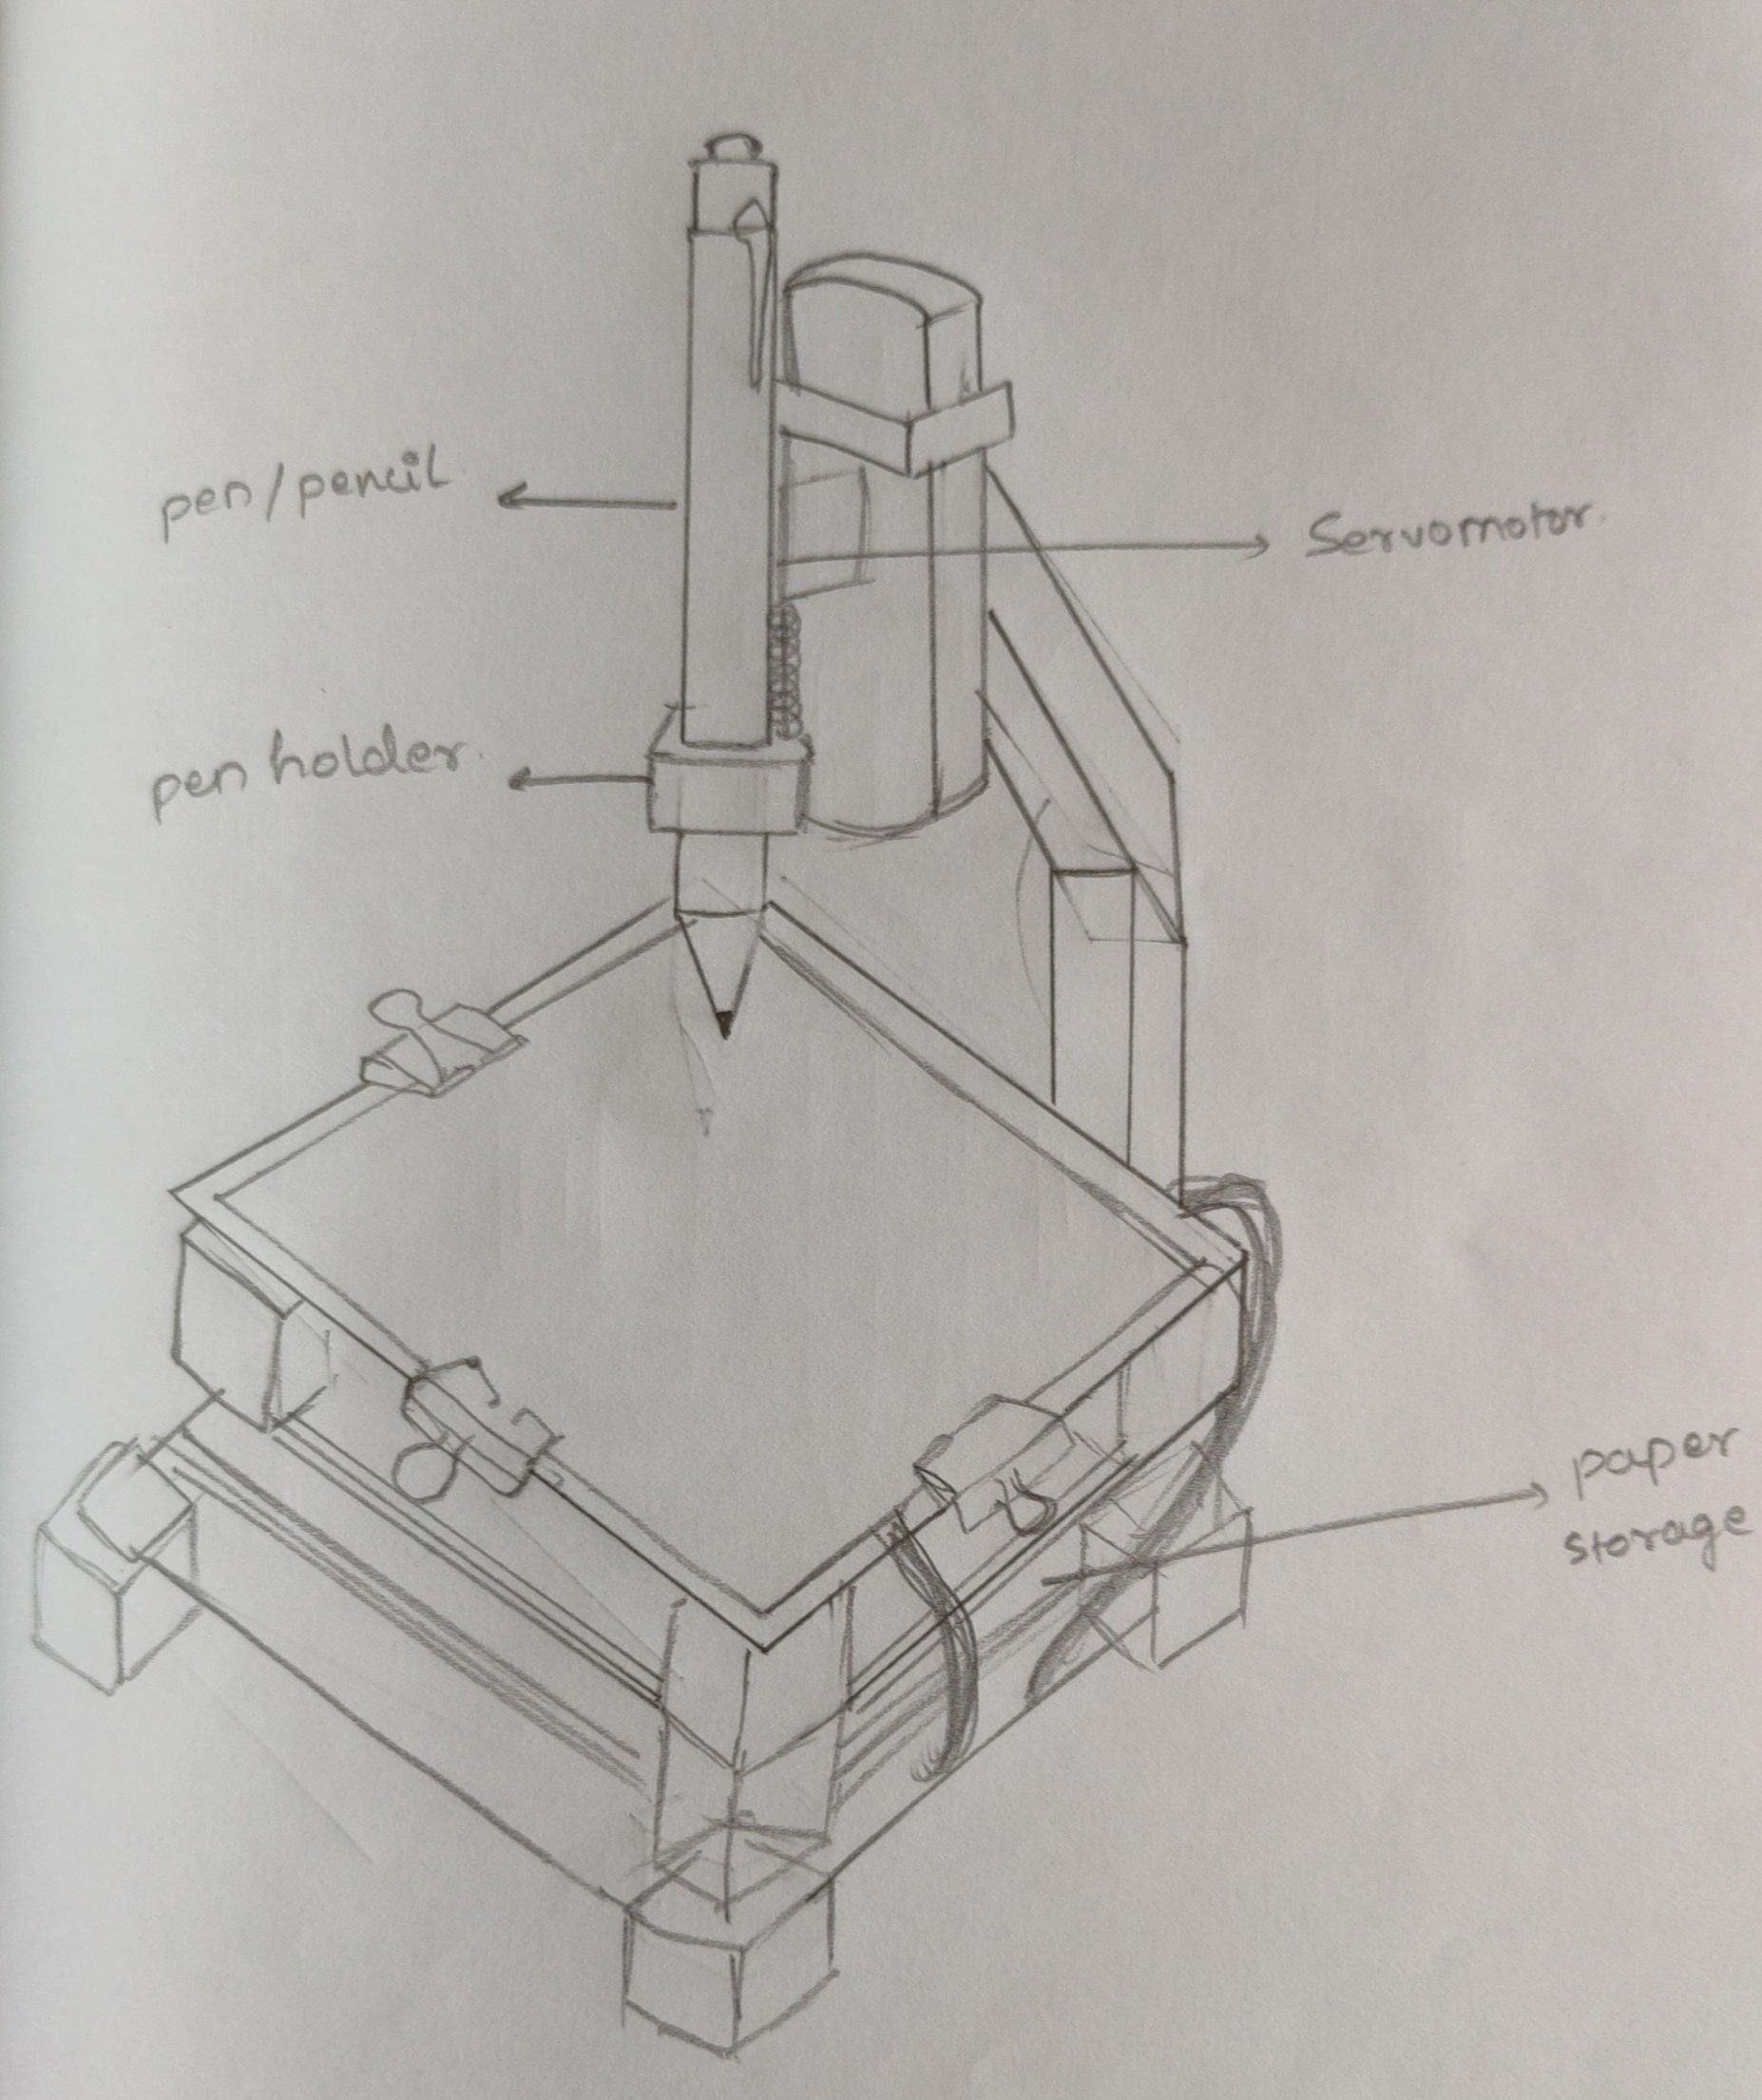 pen/pencil
Servomotor.
pen holder.
paper
storage